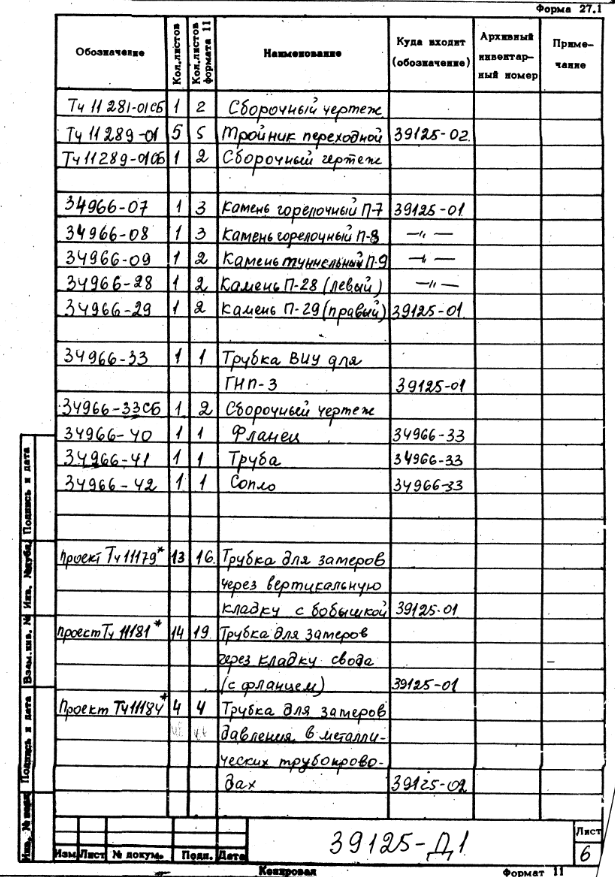 Форма 27.1
Обозначение Кол.листов Кол.листов формата 11 Наименование Куда входит (обозначение) Архивный инвентарный номер Приме-чание
Тч 11 281-01СБ 1 2 Сборочный чертеж
Тч 11 289-01 5 5 Тройник переходной 39125-02
Тч 11289-01СБ 1 2 Сборочный чертеж
34966-07 1 3 Камень горелочный П-7 39125-01
34966-08 1 3 Камень горелочный П-8 —〃—
34966-09 1 2 Камень туннельный П-9 —〃—
34966-28 1 2 Камень П-28 (левый) —〃—
34966-29 1 2 Камень П-29 (правый) 39125-01
34966-33 1 1 Трубка ВИУ для
ГНП-3 39125-01
34966-33СБ 1 2 Сборочный чертеж
34966-40 1 1 Фланец 34966-33
34966-41 1 1 Труба 34966-33
34966-42 1 1 Сопло 34966-33
Проект Тч 11179* 13 16 Трубка для замеров
через вертикальную
кладку с бобышкой 39125-01
Проект Тч 11181* 14 19 Трубка для замеров
через кладку свода
(с фланцем) 39125-01
Проект Тч 11184* 4 4 Трубка для замеров
давления в металли-
ческих трубопрово-
дах 39125-02
Инв. № подл. Подпись и дата Взам.инв. № Инв. №дубл. Подпись и дата
Изм Лист № докум. Подп. Дата
39125-Д1
Лист
6
Копировал Формат 11